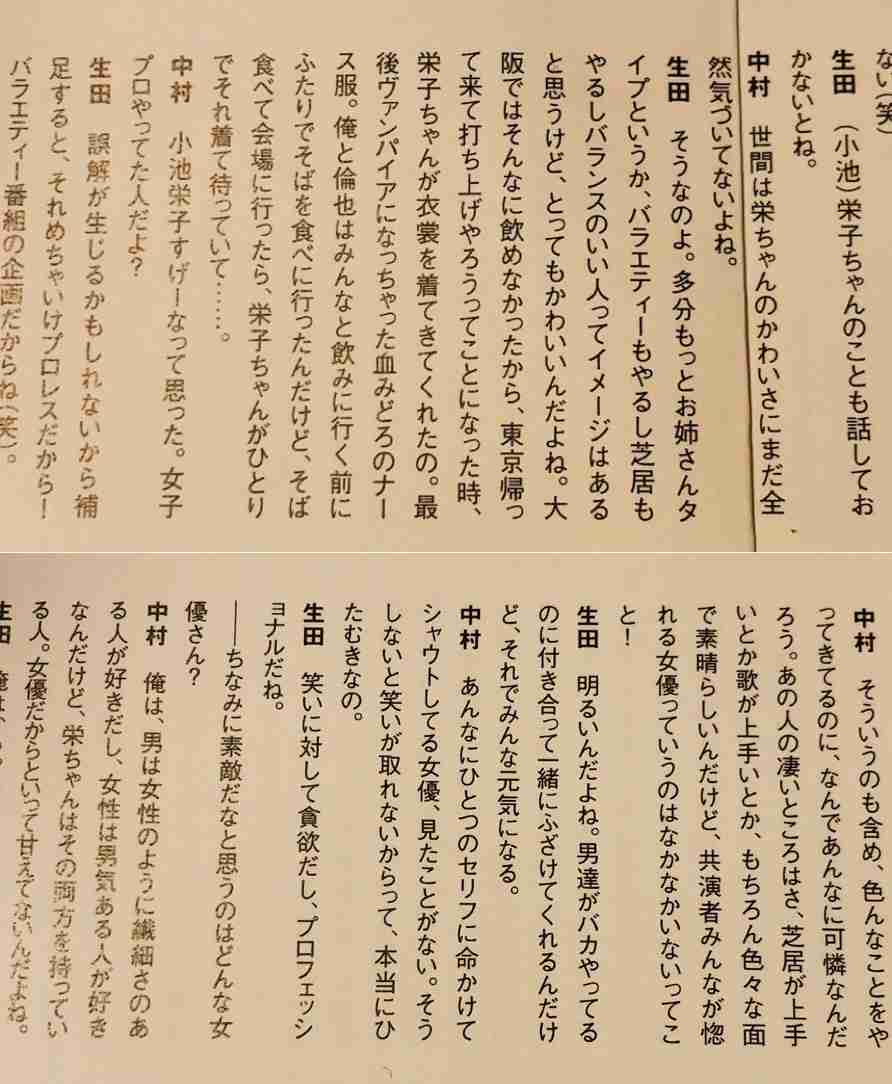 ない(笑)
生田　(小池)栄子ちゃんのことも話してお
かないとね。
中村　世間は栄ちゃんのかわいさにまだ全
然気づいてないよね。
生田　そうなのよ。多分もっとお姉さんタ
イプというか、バラエティーもやるし芝居も
やるしバランスのいい人ってイメージはある
と思うけど、とってもかわいいんだよね。大
阪ではそんなに飲めなかったから、東京帰っ
て来て打ち上げやろうってことになった時、
栄子ちゃんが衣裳を着てきてくれたの。最
後ヴァンパイアになっちゃった血みどろのナー
ス服。俺と倫也はみんなと飲みに行く前に
ふたりでそばを食べに行ったんだけど、そば
食べて会場に行ったら、栄子ちゃんがひとり
でそれ着て待っていて……。
中村　小池栄子すげーなって思った。女子
プロやってた人だよ?
生田　誤解が生じるかもしれないから補
足すると、それめちゃイケプロレスだから!
バラエティー番組の企画だからね(笑)。
中村　そういうのも含め、色んなことをや
ってきてるのに、なんであんなに可憐なんだ
ろう。あの人の凄いところはさ、芝居が上手
いとか歌が上手いとか、もちろん色々な面
で素晴らしいんだけど、共演者みんなが惚
れる女優っていうのはなかなかいないってこ
と!
生田　明るいんだよね。男達がバカやってる
のに付き合って一緒にふざけてくれるんだけ
ど、それでみんな元気になる。
中村　あんなにひとつのセリフに命かけて
シャウトしてる女優、見たことがない。そう
しないと笑いが取れないからって、本当にひ
たむきなの。
生田　笑いに対して貪欲だし、プロフェッシ
ョナルだね。
――ちなみに素敵だなと思うのはどんな女
優さん?
中村　俺は、男は女性のように繊細さのあ
る人が好きだし、女性は男気ある人が好き
なんだけど、栄ちゃんはその両方を持ってい
る人。女優だからといって甘えてないんだよね。
生田　俺は、